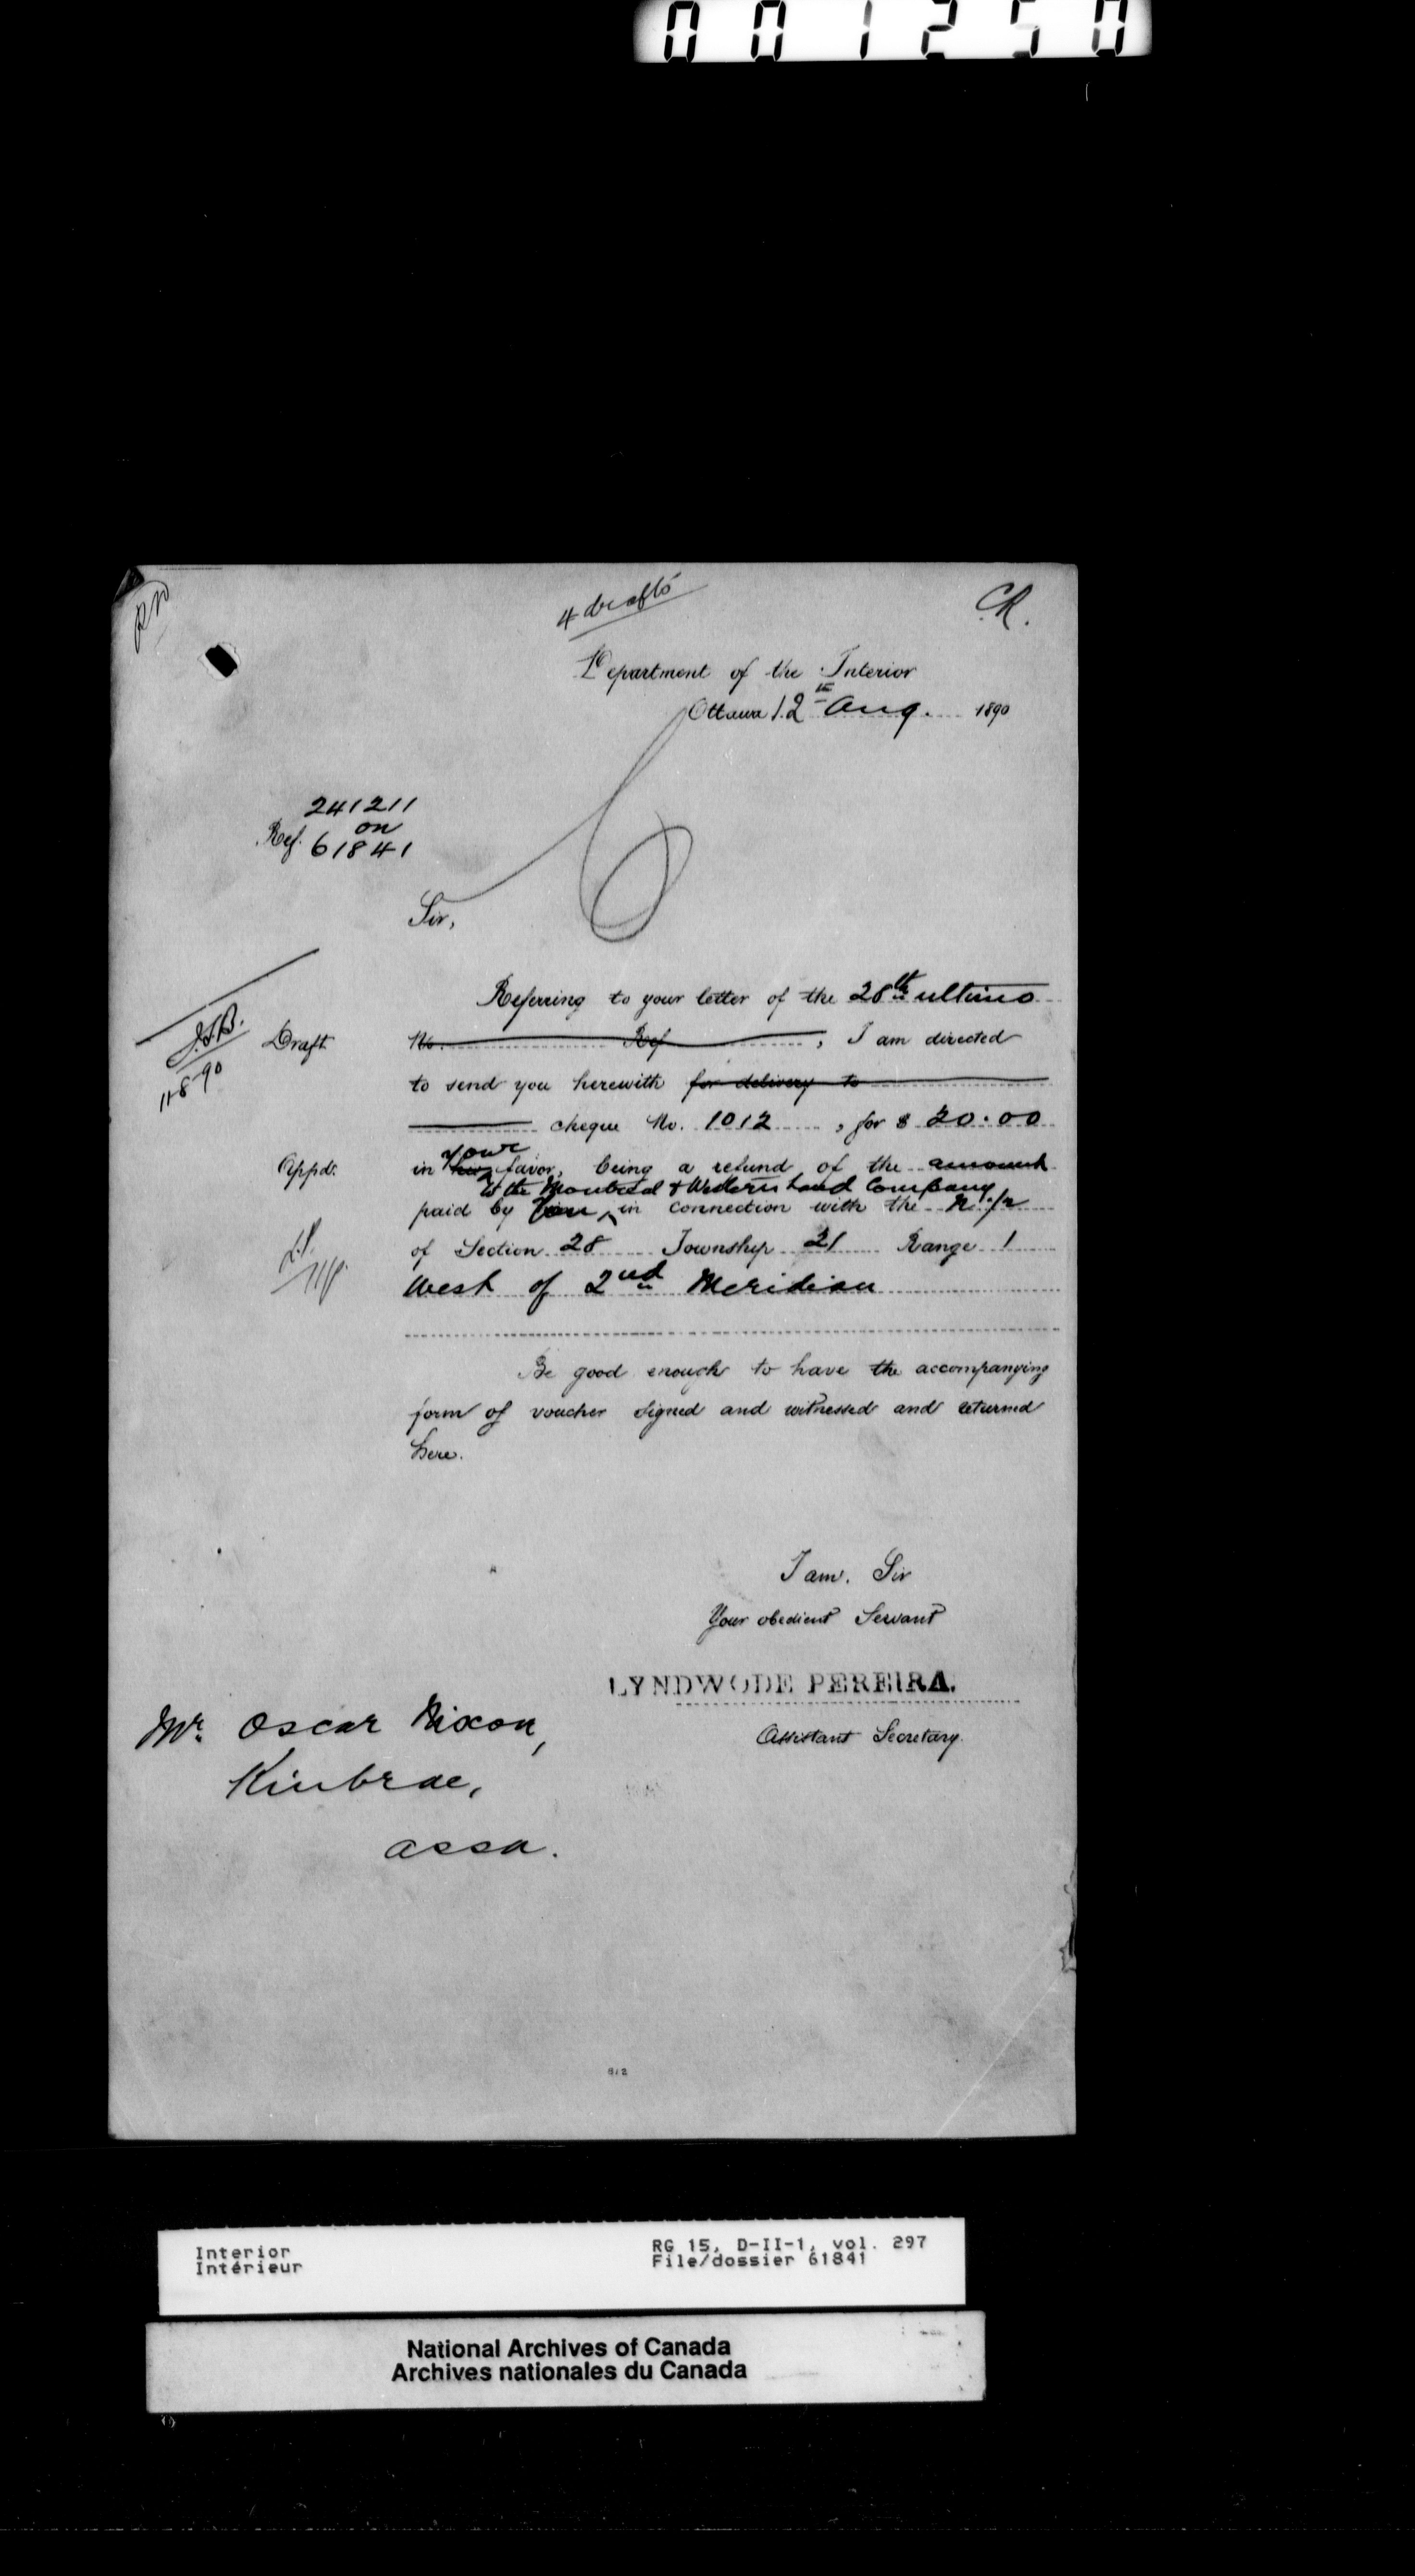 001250
4 drafts
C.R.
Department of the Interior
Ottawa 12th Aug. 1890
241211
on
Ref. 61841
Sir,
Referring to your letter of the 28th ultimo
No. Ref , I am directed
Draft
11-8-90
to send you herewith for delivery to
cheque No. 1012 , for $ 20.00
your
Appd.
in his favor, being a refund of the amount
to the Montreal & Western Land Company
paid by you in connection with the N. ½
of Section 28 Township 21 Range 1
West of 2nd Meridian
Be good enough to have the accompanying
form of voucher signed and witnessed and returned
here.
I am, Sir
Your obedient Servant
LYNDWODE PEREIRA.
Assistant Secretary.
Mr. Oscar Nixon,
Kinbrae,
Assa.
Interior
Intérieur
RG 15, D-II-1, vol. 297
File/dossier 61841
National Archives of Canada
Archives nationales du Canada